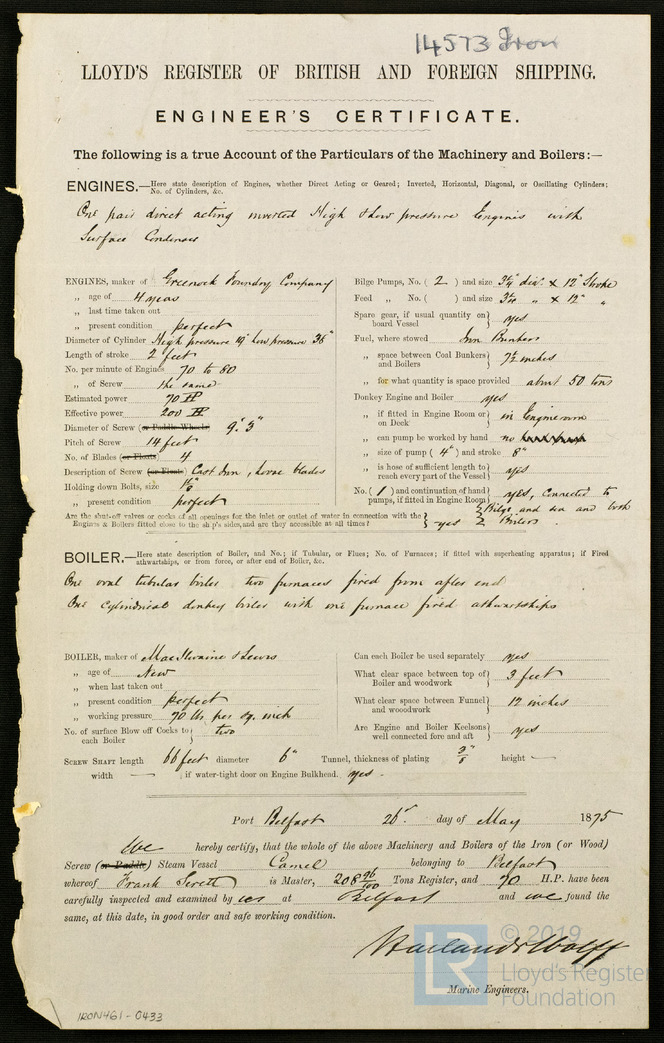 14573 Iron
LLOYD'S REGISTER OF BRITISH AND FOREIGN SHIPPING.
ENGINEER'S CERTIFICATE.
The following is a true Account of the Particulars of the Machinery and Boilers:—
ENGINES.—Here state description of Engines, whether Direct Acting or Geared; Inverted, Horizontal, Diagonal, or Oscillating Cylinders;
No. of Cylinders, &c.
One pair direct acting inverted High & low pressure Engines with
Surface Condenser
ENGINES, maker of Greenock Foundry Company
„ age of 4 years
„ last time taken out
„ present condition perfect
Diameter of Cylinder High pressure 19" low pressure 36"
Length of stroke 2 feet
No. per minute of Engines 70 to 80
„ of Screw the same
Estimated power 70 HP
Effective power 200 HP
Diameter of Screw (or Paddle Wheels) 9'. 3"
Pitch of Screw 14 feet
No. of Blades (or Floats) 4
Description of Screw (or Float) Cast Iron, loose blades
Holding down Bolts, size
„ present condition perfect
Are the shut-off valves or cocks of all openings for the inlet or outlet of water in connection with the
Engines & Boilers fitted close to the ship's sides, and are they accessible at all times? yes
Bilge Pumps, No. ( 2 ) and size 3¼" dia. x 12" Stroke
Feed „ No. ( ) and size 3¼ „ x 12" „
Spare gear, if usual quantity on
board Vessel yes
Fuel, where stowed Iron Bunkers
„ space between Coal Bunkers
and Boilers 7½ inches
„ for what quantity is space provided about 50 tons
Donkey Engine and Boiler yes
„ if fitted in Engine Room or
on Deck in Engineroom
„ can pump be worked by hand no
„ size of pump ( 4" ) and stroke 8"
„ is hose of sufficient length to
reach every part of the Vessel yes
No. ( 1 ) and continuation of hand
pumps, if fitted in Engine Room yes, connected to
Bilge and sea and both
Boilers.
BOILER.—Here state description of Boiler, and No.; if Tubular, or Flues; No. of Furnaces; if fitted with superheating apparatus; if Fired
athwartships, or from force, or after end of Boiler, &c.
One oval tubular boiler two furnaces fired from after end
One Cylindrical donkey boiler with one furnace fired athwartships
BOILER, maker of MacIlwaine & Lewis
„ age of New
„ when last taken out
„ present condition perfect
„ working pressure 70 lbs per sq. inch
No. of surface Blow off Cocks to
each Boiler two
Can each Boiler be used separately yes
What clear space between top of
Boiler and woodwork 3 feet
What clear space between Funnel
and wooodwork 12 inches
Are Engine and Boiler Keelsons
well connected fore and aft yes
SCREW SHAFT length 66 feet diameter 6" Tunnel, thickness of plating height —
width — , if water-tight door on Engine Bulkhead. yes -
Port Belfast 26th day of May 1875
We hereby certify, that the whole of the above Machinery and Boilers of the Iron (or Wood)
Screw (or Paddle) Steam Vessel Camel belonging to Belfast
whereof Frank is Master, 208 96/100 Tons Register, and 70 H.P. have been
carefully inspected and examined by us at Belfast and we found the
same, at this date, in good order and safe working condition.
Harland & Wolff
Marine Engineers.
© 2019
LR
Lloyd's Register
Foundation
IRON461-0433